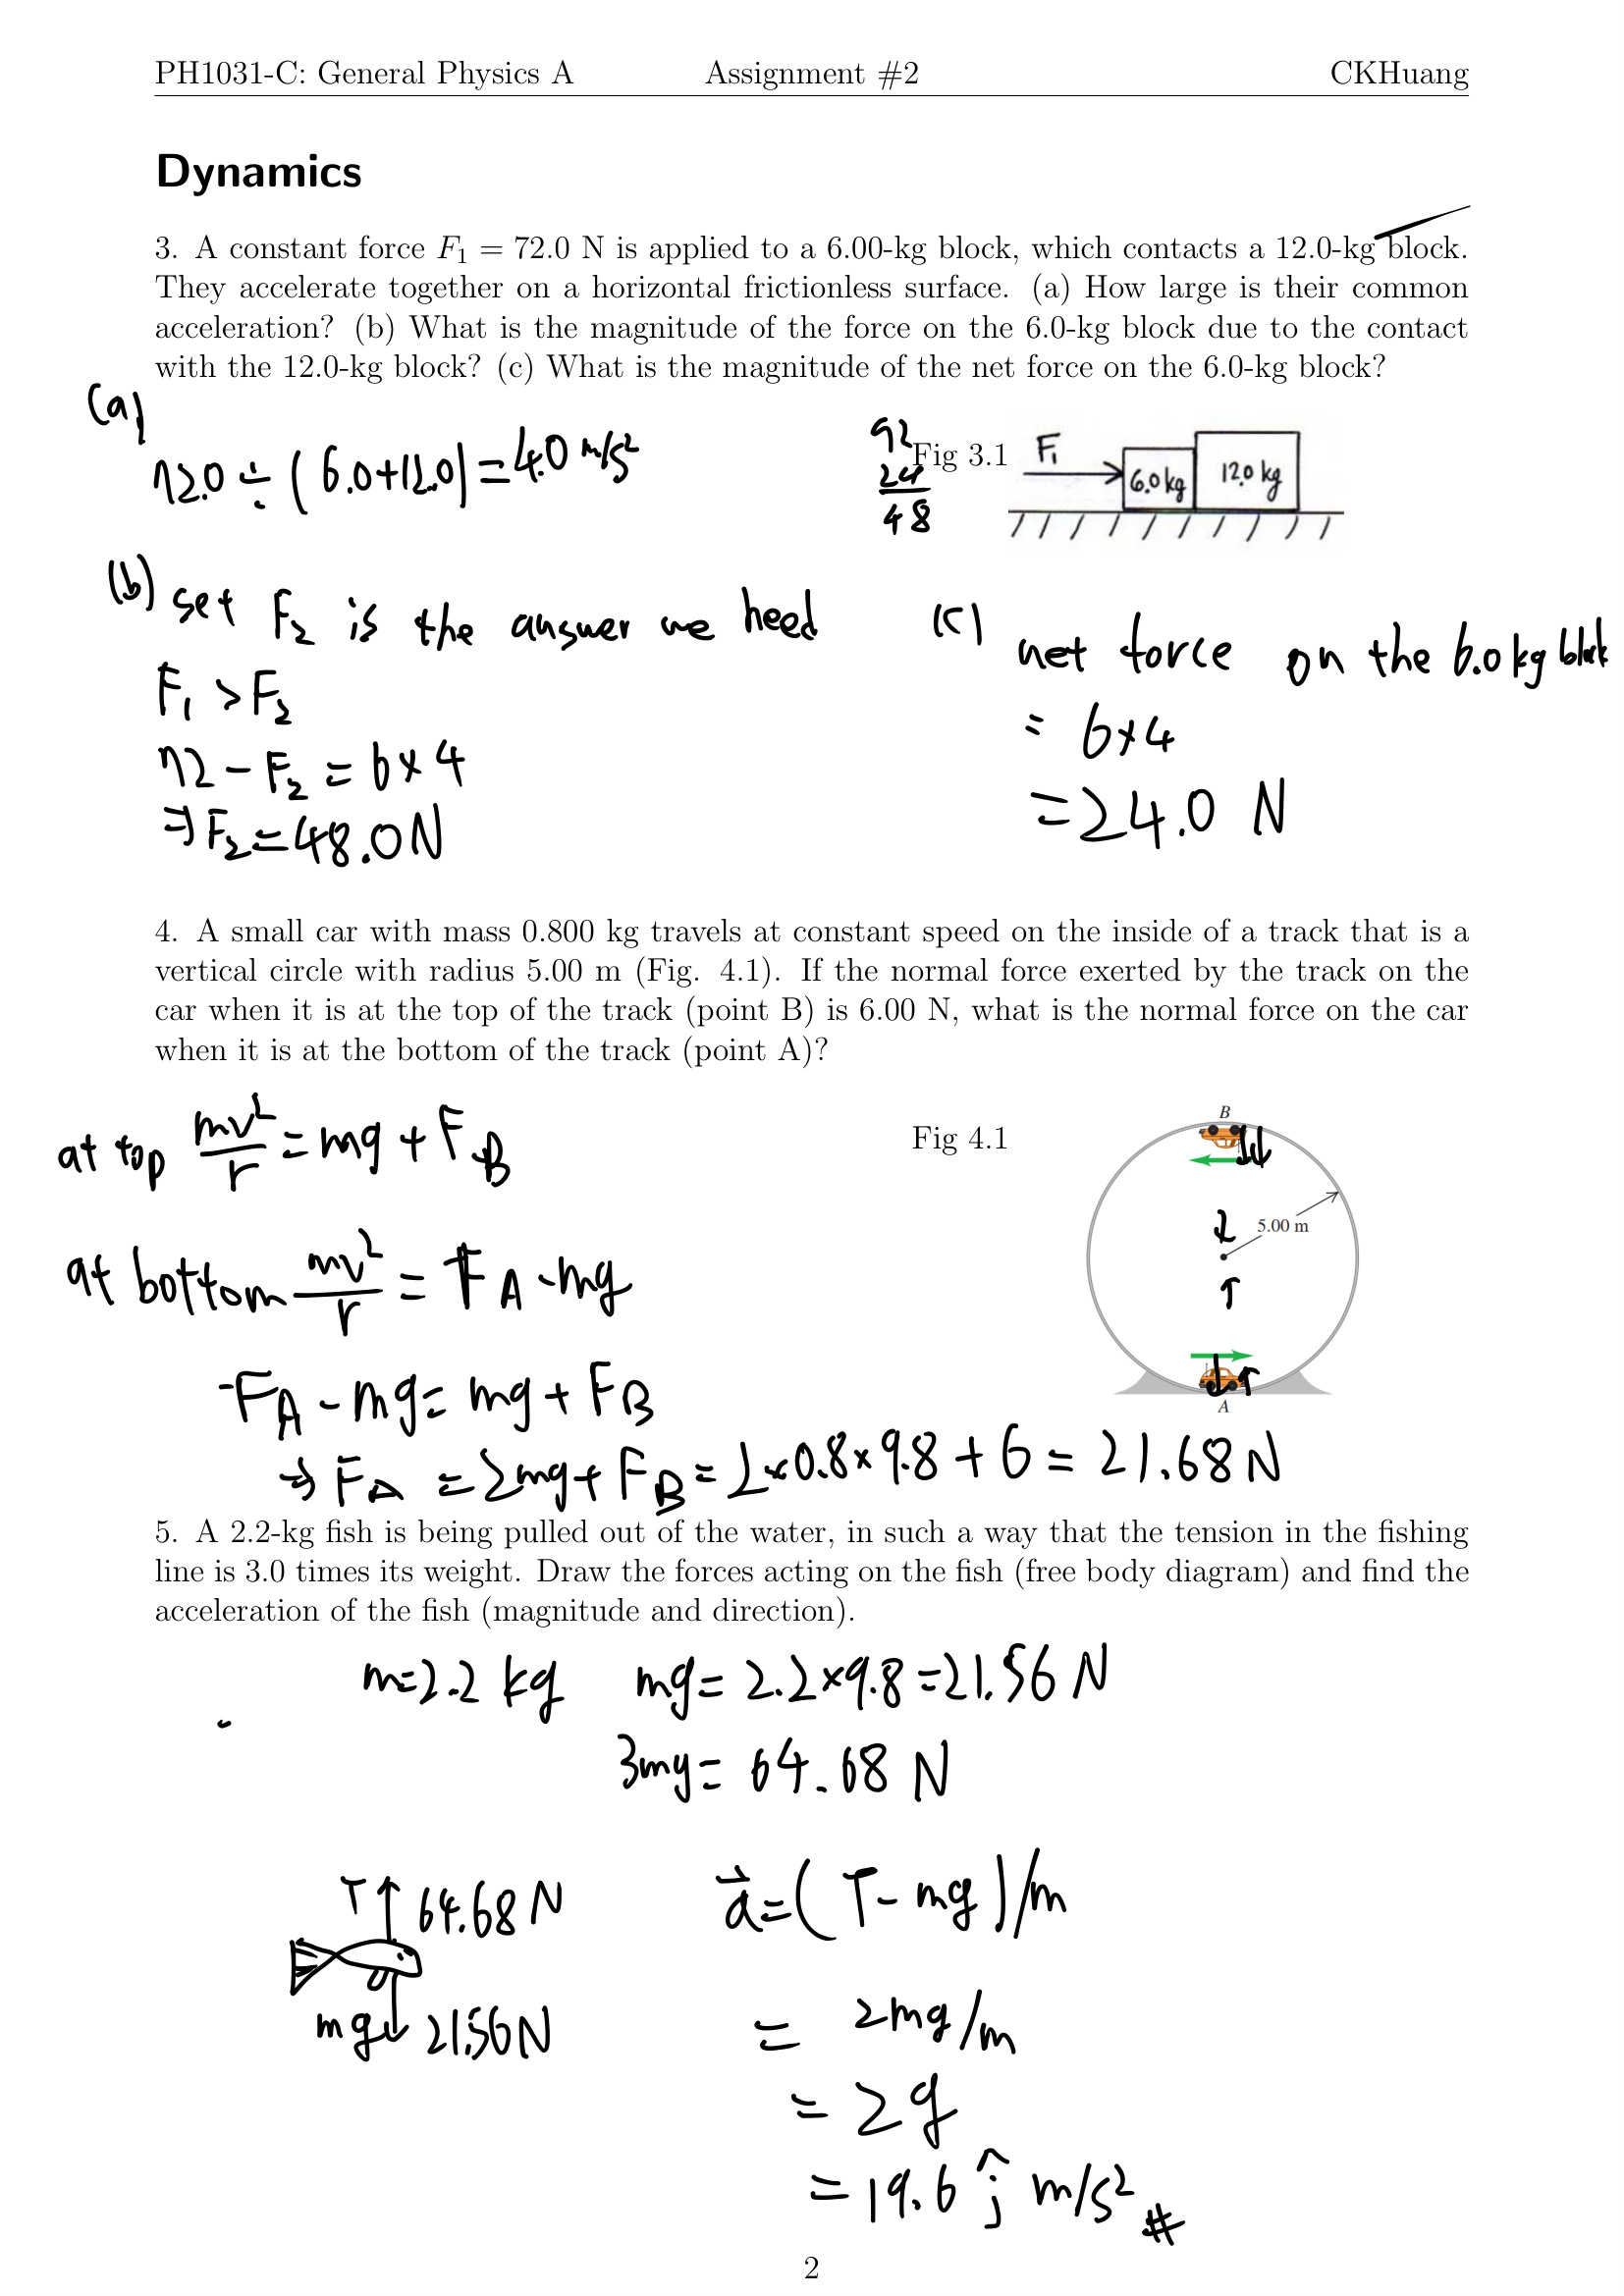 PH1031-C: General Physics A Assignment #2 CKHuang
Dynamics
3. A constant force F₁ = 72.0 N is applied to a 6.00-kg block, which contacts a 12.0-kg block.
They accelerate together on a horizontal frictionless surface. (a) How large is their common
acceleration? (b) What is the magnitude of the force on the 6.0-kg block due to the contact
with the 12.0-kg block? (c) What is the magnitude of the net force on the 6.0-kg block?
(a)
72.0 ÷ (6.0+12.0) = 4.0 m/s²
72
24
48
Fig 3.1
F₁
6.0 kg
12.0 kg
(b) set F₂ is the answer we need
F₁ > F₂
72 - F₂ = 6 × 4
⇒ F₂ = 48.0 N
(c) net force on the 6.0 kg block
= 6×4
= 24.0 N
4. A small car with mass 0.800 kg travels at constant speed on the inside of a track that is a
vertical circle with radius 5.00 m (Fig. 4.1). If the normal force exerted by the track on the
car when it is at the top of the track (point B) is 6.00 N, what is the normal force on the car
when it is at the bottom of the track (point A)?
at top mv²/r = mg + F_B
at bottom mv²/r = F_A - mg
F_A - mg = mg + F_B
⇒ F_A = 2mg + F_B = 2×0.8×9.8 + 6 = 21.68 N
Fig 4.1
B
5.00 m
A
5. A 2.2-kg fish is being pulled out of the water, in such a way that the tension in the fishing
line is 3.0 times its weight. Draw the forces acting on the fish (free body diagram) and find the
acceleration of the fish (magnitude and direction).
m=2.2 kg mg = 2.2×9.8 = 21.56 N
3mg = 64.68 N
T↑ 64.68 N
mg↓ 21.56 N
a⃗ = (T - mg)/m
= 2mg/m
= 2g
= 19.6 ĵ m/s² #
2